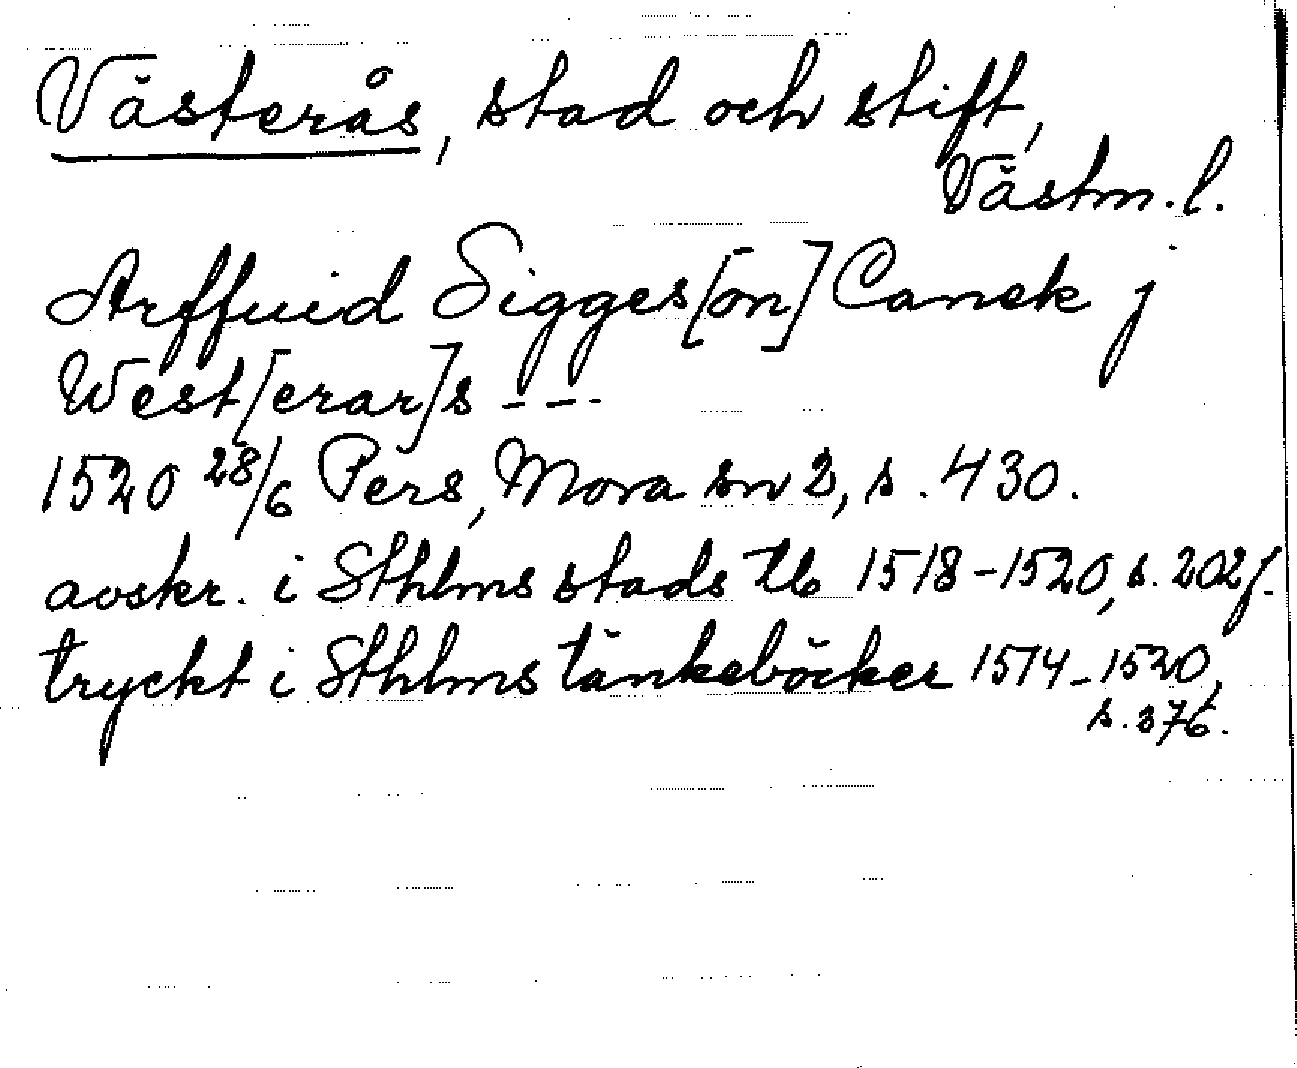 Västerås, stad och stift,
Västm.l.
Arffuid Sigges[on] Canek j
West[erar]s ---
1520 28/6 Pers, Mora sn 2, s. 430.
avskr. i Sthlms stads tb 1518-1520, s. 202f.
tryckt i Sthlms tänkeböcker 1514-1520,
s. 376.